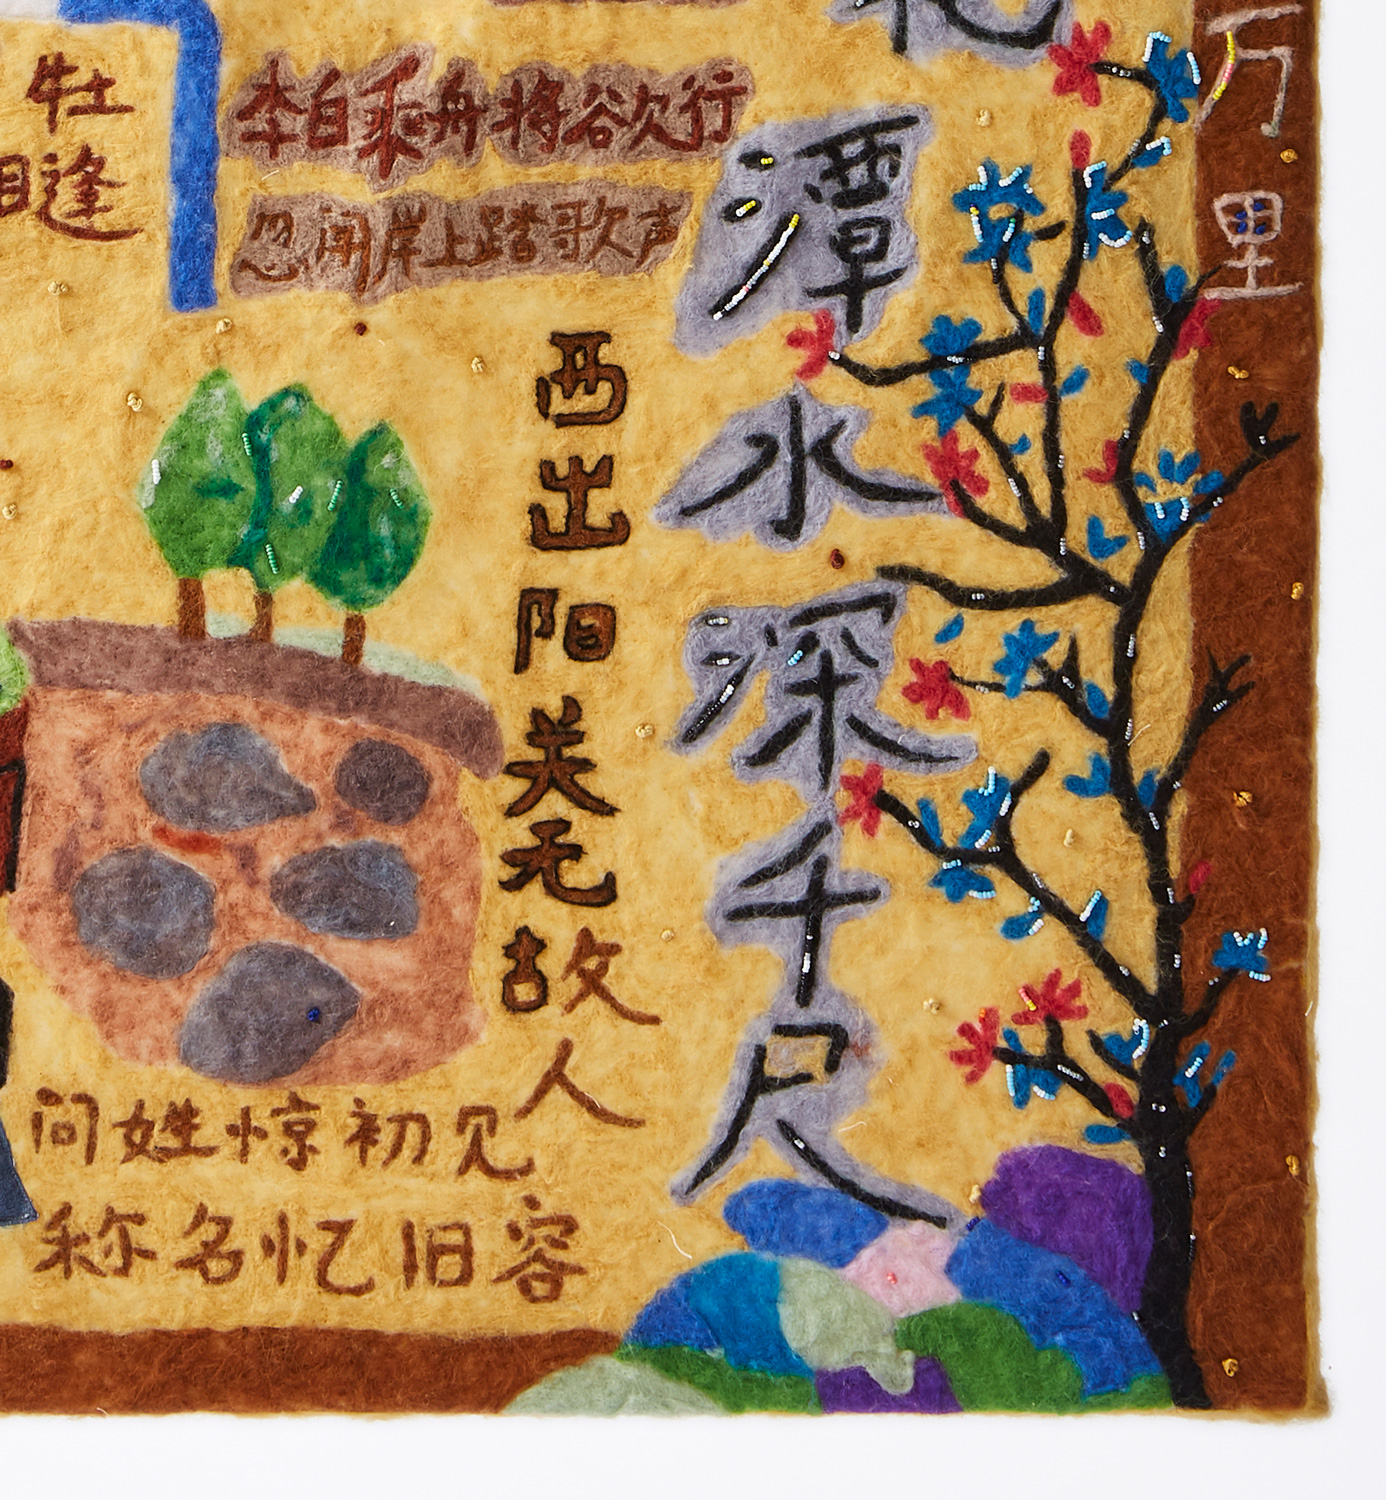 牡
相逢
李白乘舟将欲行
忽闻岸上踏歌声
西出阳关无故人
花潭水深千尺
万里
问姓惊初见
称名忆旧容